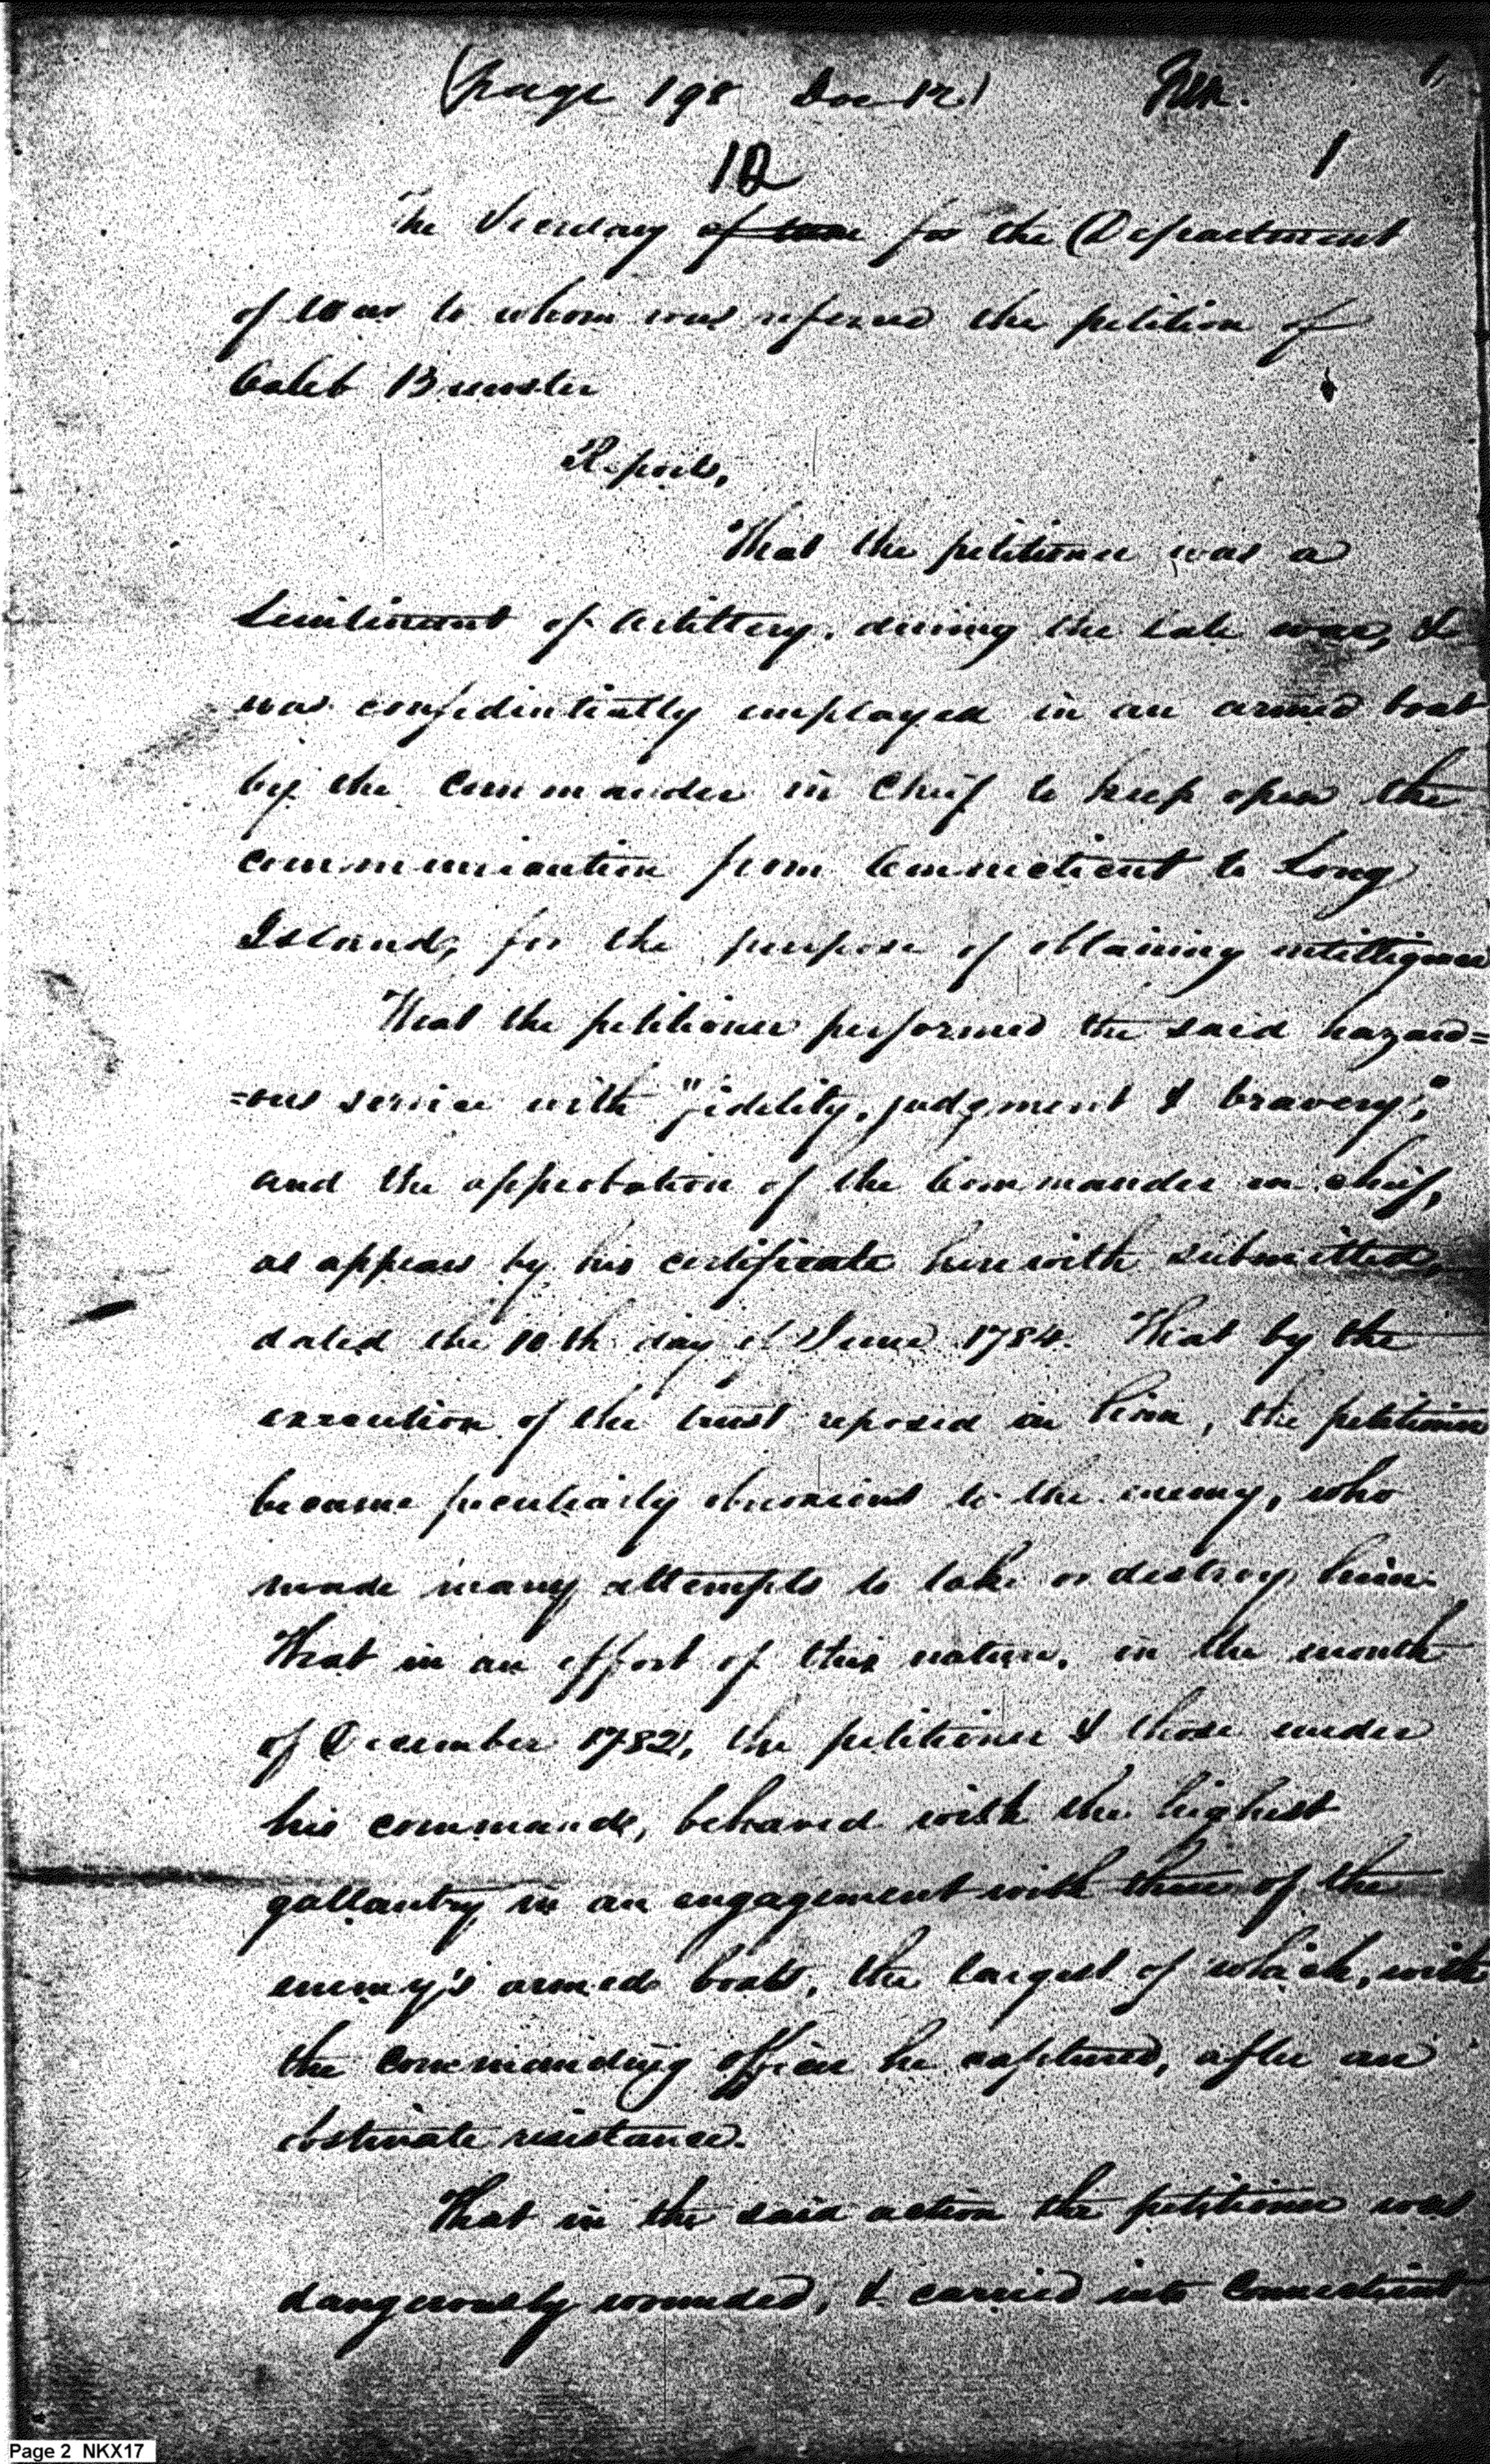 (page 198 Doc 12)
1
12
1
The Secretary of war for the Department
of War to whom was refered the petition of
Caleb Brewster
Reports,
That the petitioner was a
Lieutenant of Artillery, during the late war, &
was confidentially employed in an armed boat
by the Commander in Chief to keep open the
communication from Connecticut to Long
Island, for the purpose of obtaining intelligence
That the petitioner performed the said hazard=
=ous service with "fidelity, judgment & bravery",
and the approbation of the Commander in chief,
as appears by his certificate herewith submitted,
dated the 10th day of June 1784. That by the
execution of the trust reposed in him, the petitioner
became peculiarly obnoxious to the enemy, who
made many attempts to take or destroy him.
That in an effort of this nature, in the month
of December 1782, the petitioner & those under
his command, behaved with the highest
gallantry in an engagement with three of the
enemy's armed boats, the largest of which, with
the commanding officer he captured, after an
obstinate resistance.
That in the said action the petitioner was
dangerously wounded, & carried into Connecticut
Page 2 NKX17